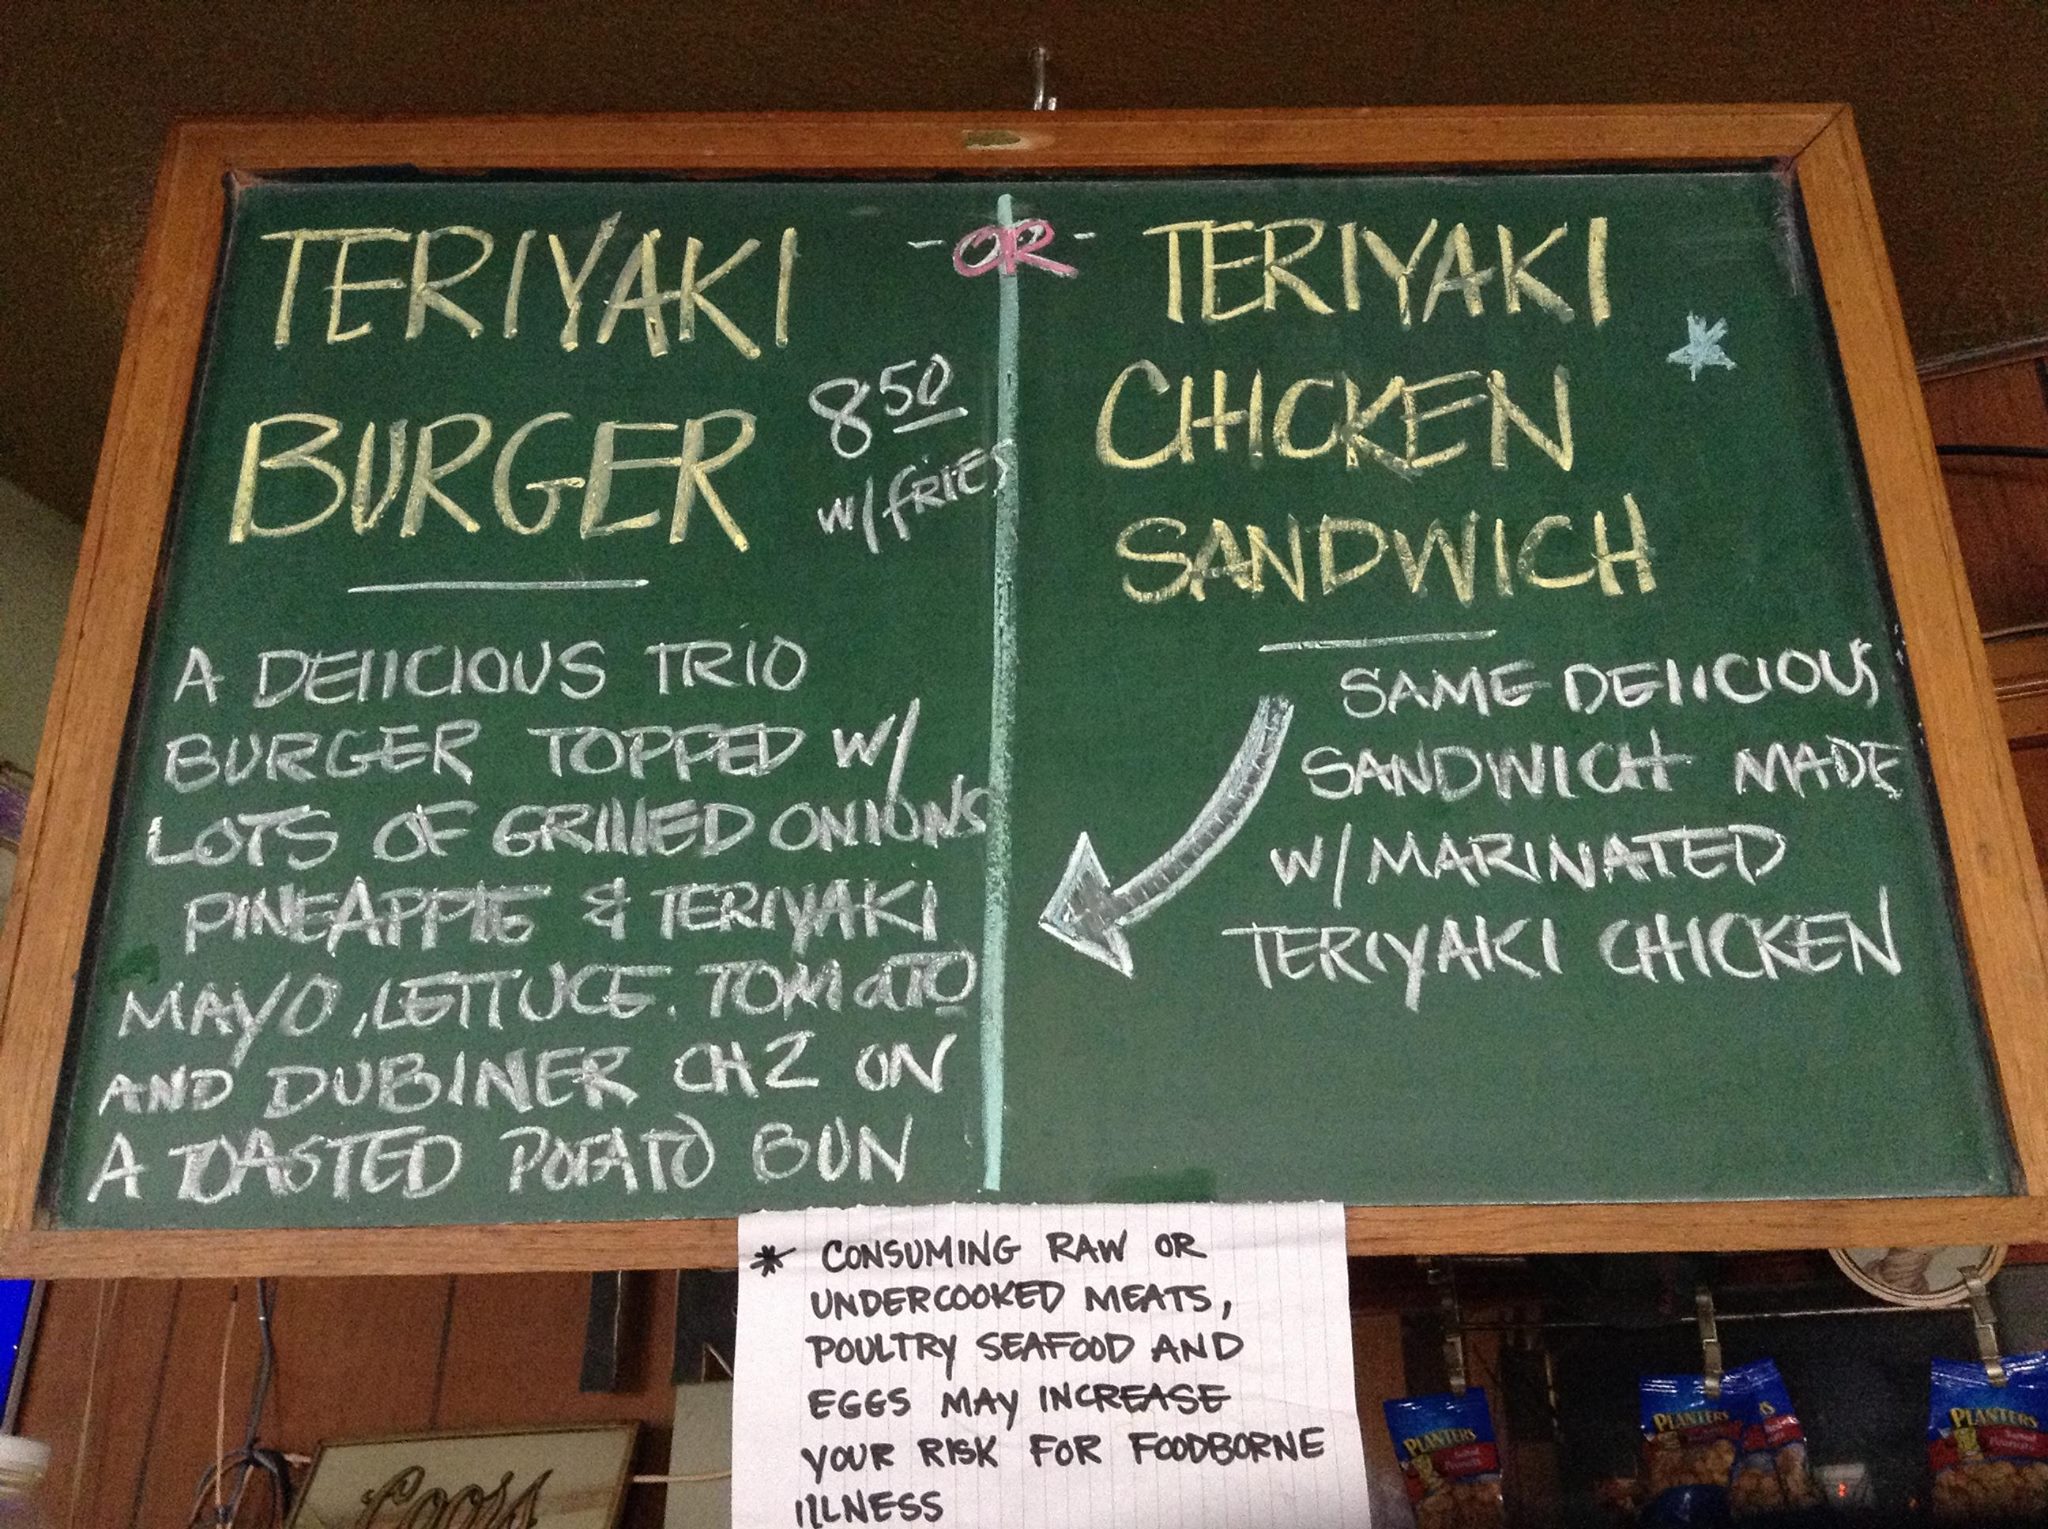 TERIYAKI
BURGER
8.50
w/ fRIES
A DElICIOUS TRIO
BURGER TOPPED w/
LOTS OF GRIllED ONIONS
PINEAPPlE & TERIYAKI
MAYO, LETTUCE. TOMaTO
AND DUBlINER CHZ ON
A TOASTED POTATO BUN
-OR-
TERIYAKI
CHICKEN *
SANDWICH
SAME DElICIOUS
SANDWICH MADE
W/ MARINATED
TERIYAKI CHICKEN
* CONSUMING RAW OR
UNDERCOOKED MEATS,
POULTRY SEAFOOD AND
EGGS MAY INCREASE
YOUR RISK FOR FOODBORNE
IllNESS
Coors
PLANTERS
Salted
Peanuts
PLANTERS
PLANTERS
Salted
Peanuts